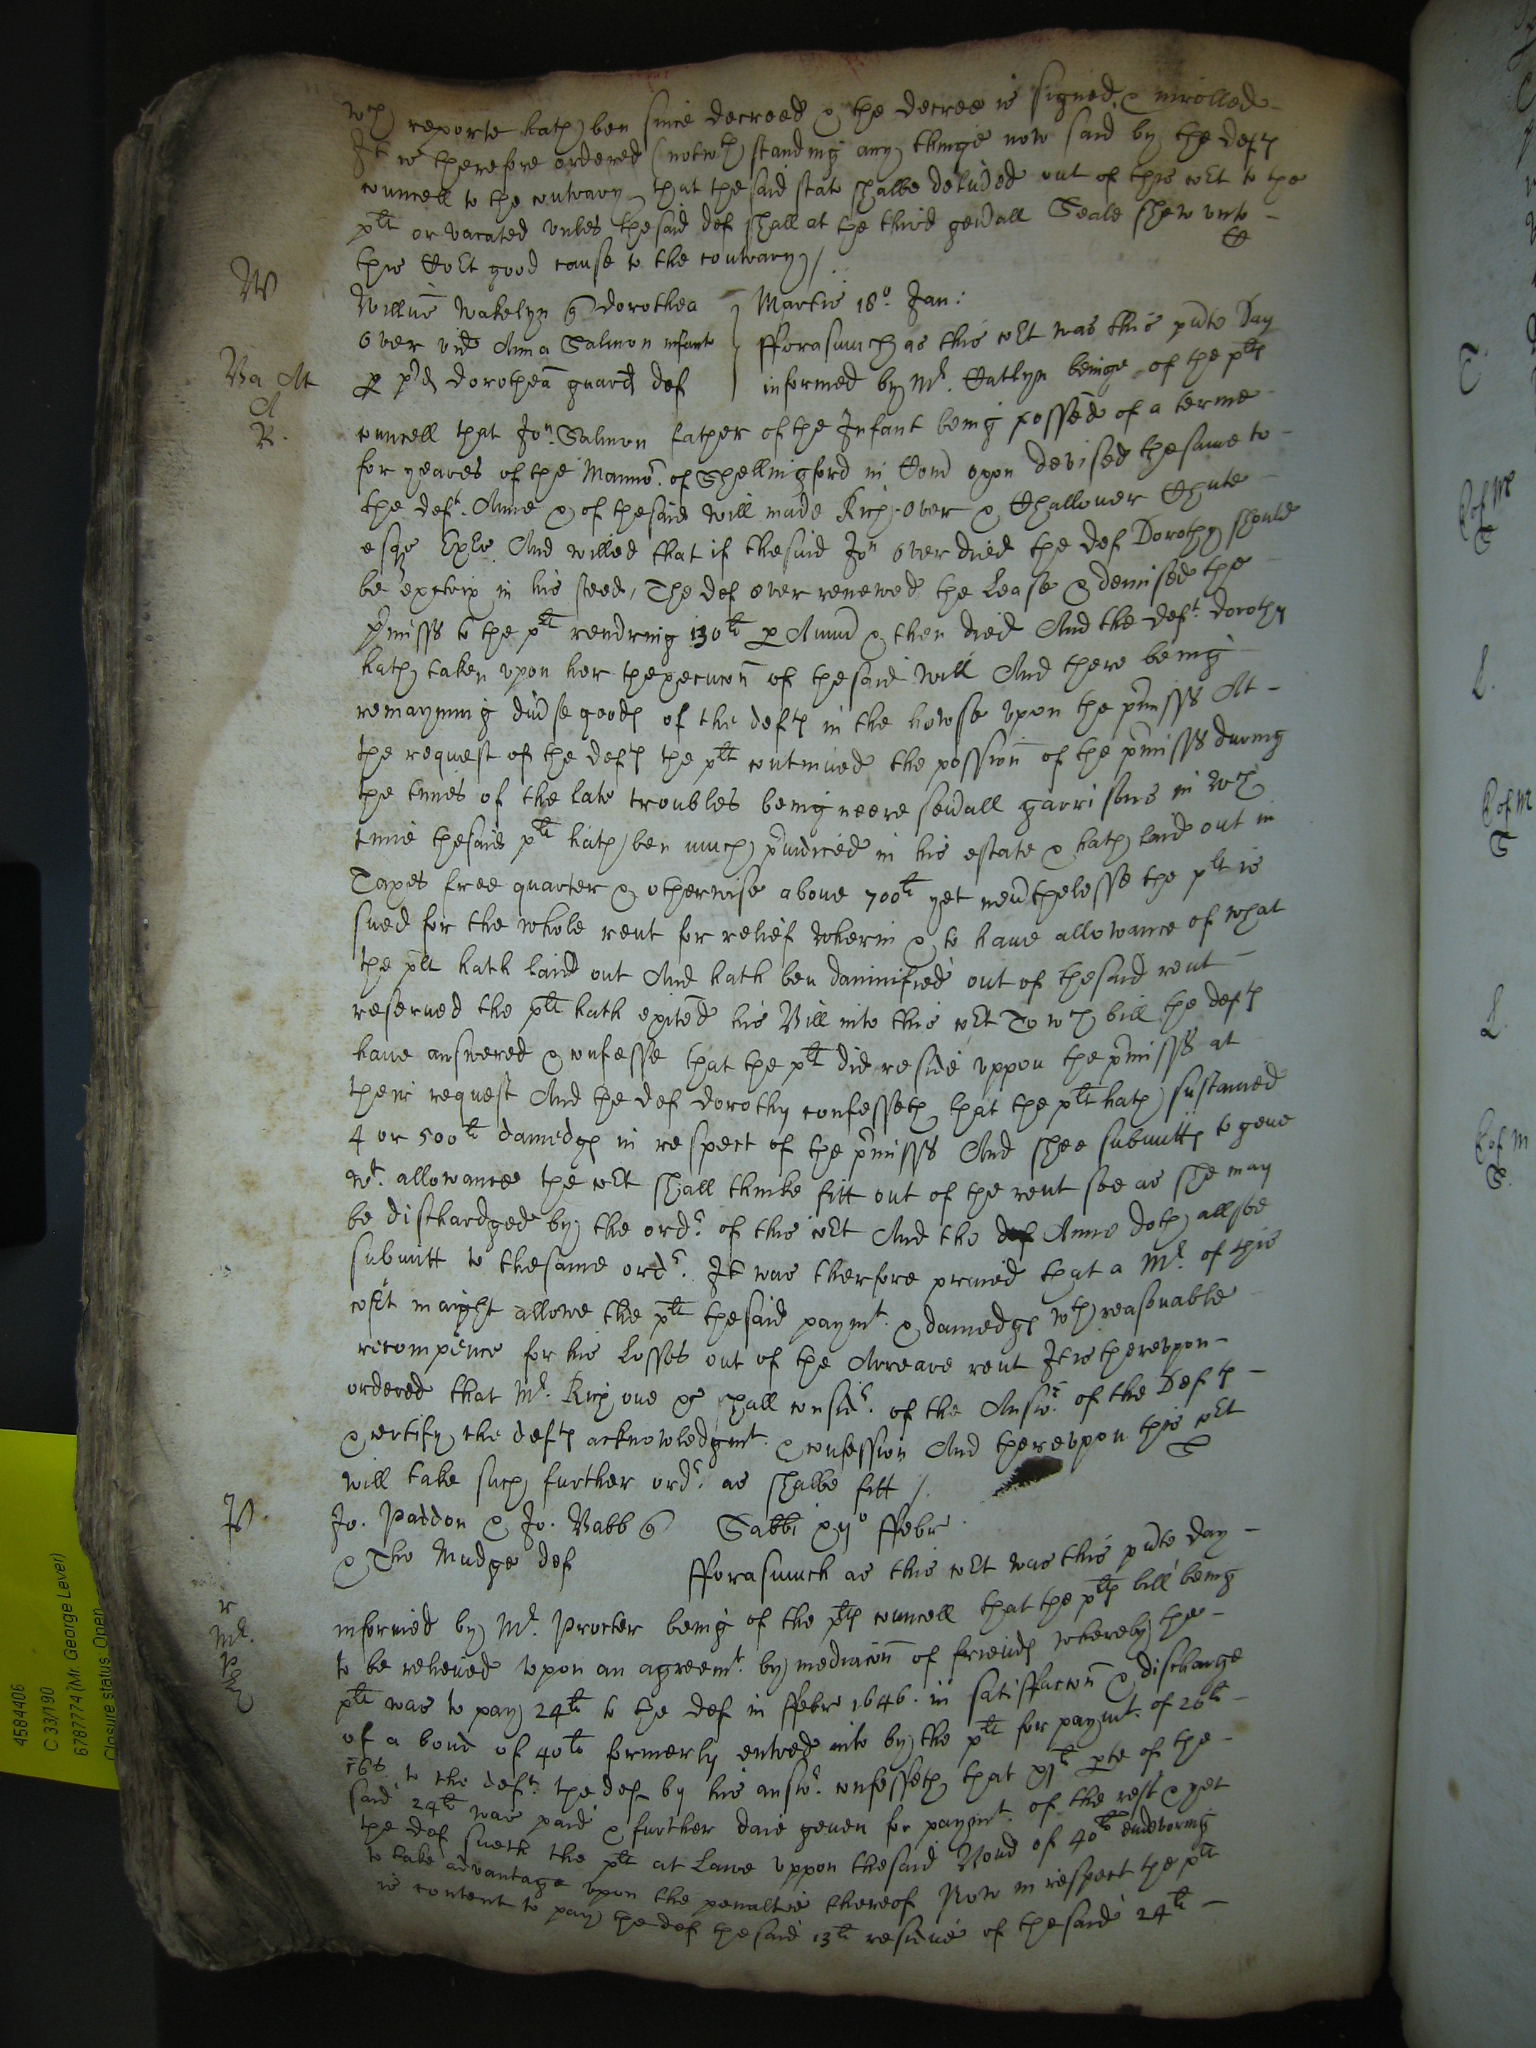 wch reporte hath ben since decreed & the decree is signed & inrolled
It is therefore ordered (notwth standing any thinge now said by the defts
councell to the contrary that the said state shalbe deluded out of this cort to the
plt or vacated unles the said def shall at the third genall Seale shew unto
this Cort good cause to the contrary /
W
Willms Wakelyn q Dorothea
Martis 18o Jan:
Over vid Anna Salmon infante
fforasmuch as this cort was this pnte Day
Ba At
p pd dorothea guard def
informed by Mr. Catlyn beinge of the plts
A
R.
councell that Jon. Salmon father of the Infant being possed of a terme
for yeares of the Mannor. of Shellingford in Com Oxon devised thesame to
the deft. Anne & of thesaid will made Rich. Over & Challoner Chute
esqr Exrs. And willed that if thesaid Jon Over died the def Dorothy should
be exectrix in his steed, The def Over renewed the Lease & demised the
pmisss to the plt rendring 130li p Annu & then died And the deft. dorothy
hath taken upon her thexecucon of thesaid Will And there being
remayning divse goods of the defts in the howse upon the pmisss At
the request of the defts the plt continued the possion of the pmisss during
the times of the late troubles being neere sevall garrisons in wch
time thesaid plt hath ben much pjudiced in his estate & hath laid out in
Taxes free quarter & otherwise above 700li yet nevthelesse the plt is
sued for the whole rent for relief wherin & to have allowance of what
the plt hath laid out And hath ben damnified out of thesaid rent
reserved the plt hath exited his Bill into this cort To wch bill the defts
have answered & confesse that the plt did reside uppon the pmisss at
their request And the def dorothy confesseth that the plt hath sustained
4 or 500li damedgs in respect of the pmisss And shee submitts to geve
wt. allowance the cort shall thinke fitt out of the rent soe as she may
be dischardged by the ordr. of this cort And the def Anne doth allsoe
submitt to thesame ordr. It was therfore praied that a Mr. of this
cort maight allowe the plt thesaid paymt. & damedgs wth reasonable
recompence for his Losses out of the Arreare rent It is thereupon
ordered that Mr. Rich one &c shall considr. of the Answr. of the Defts
& certify the defts acknowledgmt. & confession And thereupon this cort
will take such further ordr. as shalbe fitt /.
P.
Jo. Paddon & Jo. Babb q
Sabbi xijo ffebr.
& Tho Mudge def
fforasmuch as this cort was this pnte day
r
Mr.
informed by Mr. Procter being of the plts councell that the plts bill being
to be releived upon an agreemt. by mediacon of freinds whereby the
plt was to pay 24li to the def in ffebr 1646. in satisffaccon & discharge
of a bond of 40li formerly entred into by the plt for paymt. of 26li
16s to the deft. the def by his answr. confesseth that xjli pte of the
said 24li was paid & further daie geven for paymt. of the rest & yet
the def sueth the plt at Lawe uppon thesaid Bond of 40li endevoring
to take advantage upon the penaltie thereof Now in respect the plt
is content to pay the def thesaid 13li residue of thesaid 24li
4584406
C 33/190
6787774 (Mr. George Lever)
Closure status: Open